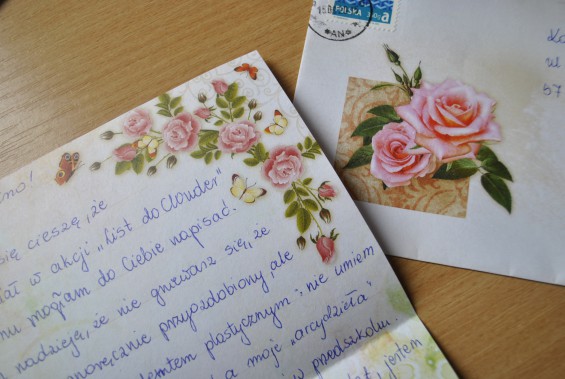 POLSKA
a
mo!
się cieszę, że
iał w akcji „List do Clouder"
mu mogłam do Ciebie napisać.
nadzieję, że nie gniewasz się, że
noręcznie przyozdobiony, ale
lentem plastycznym i nie umiem
a moje „arcydzieła"
w przedszkolu.
jestem
ul
57